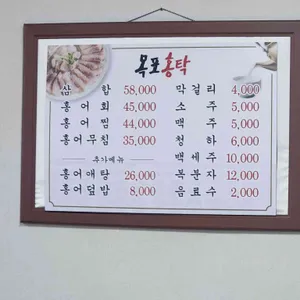 목포홍탁
삼 합 58,000
홍 어 회 45,000
홍 어 찜 44,000
홍어무침 35,000
추가메뉴
홍어애탕 26,000
홍어덮밥 8,000
막걸리 4,000
소 주 5,000
맥 주 5,000
청 하 6,000
백세주 10,000
복분자 12,000
음료수 2,000